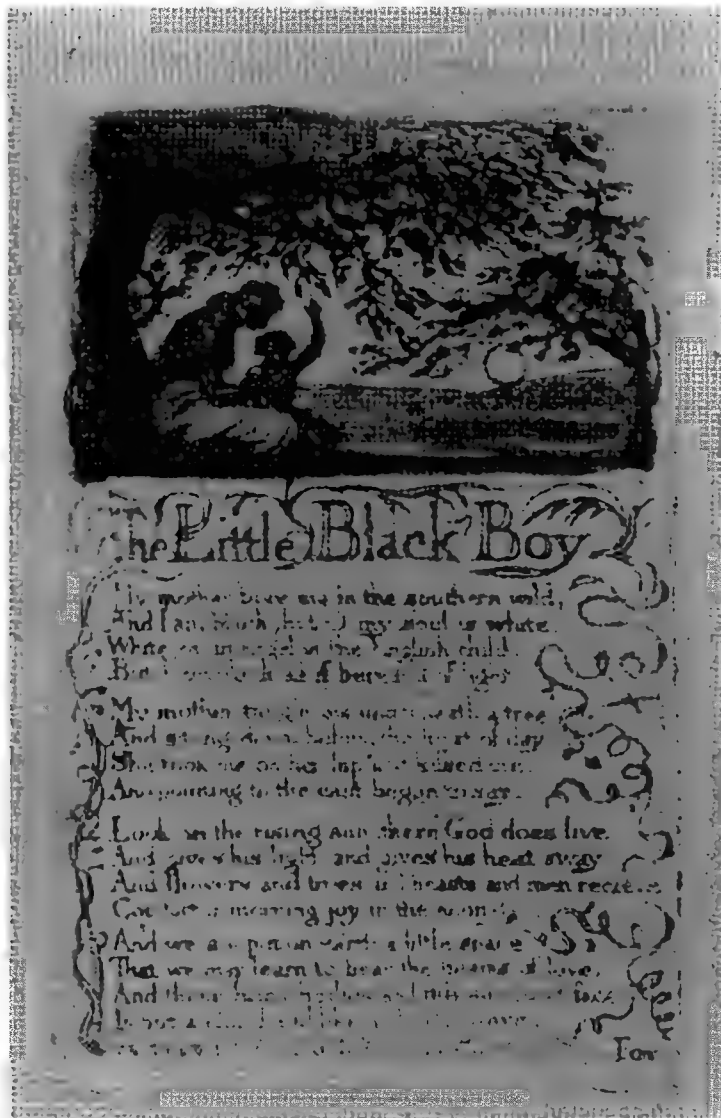 The Little Black Boy
My mother bore me in the southern wild,
And I am black, but O my soul is white
White as an angel is the English child
But I am black as if
My mother taught me underneath a tree
And sitting down before the heat of day
She took me on her lap and kissed me
And pointing to the east began to say
Look on the rising sun there God does live
And gives his light and gives his heat away
And flowers and trees and beasts and men receive
morning joy in the
And we are put on earth a little space
That we may learn to bear the beams of love,
And these black bodies and this face
Is but a
For